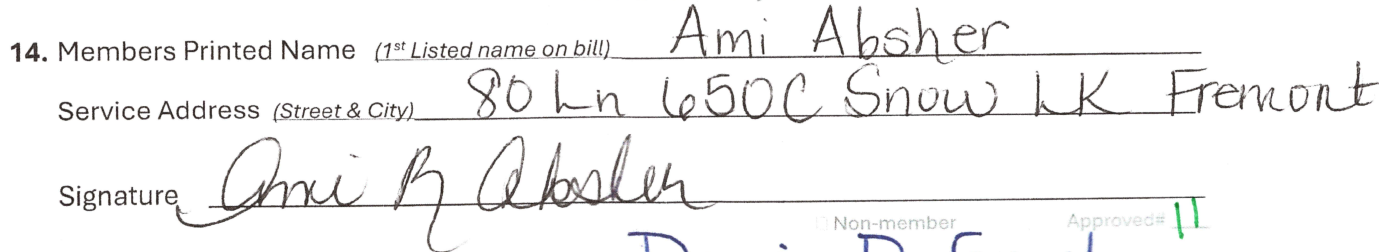 14. Members Printed Name (1st Listed name on bill) Ami Absher
Service Address (Street & City) 80 Ln 650C Snow LK Fremont
Signature Ami R Absher
Non-member Approved# 11